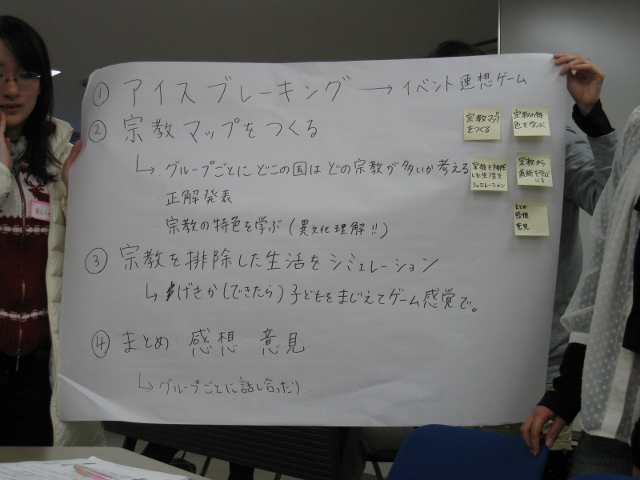 ① アイスブレーキング → イベント連想ゲーム
② 宗教マップをつくる
↳ グループごとに どこの国は どの宗教が多いか考える
正解発表
宗教の特色を学ぶ (異文化理解!!)
③ 宗教を排除した生活をシミュレーション
↳ げきか (できたら) 子どもをまじえてゲーム感覚で。
④ まとめ 感想 意見
↳ グループごとに話し合ったり
宗教マップ
をつくる
宗教の特
色を学ぶ
宗教を排除
した生活を
シュミレーション
宗教から
まとめ
感想
意見